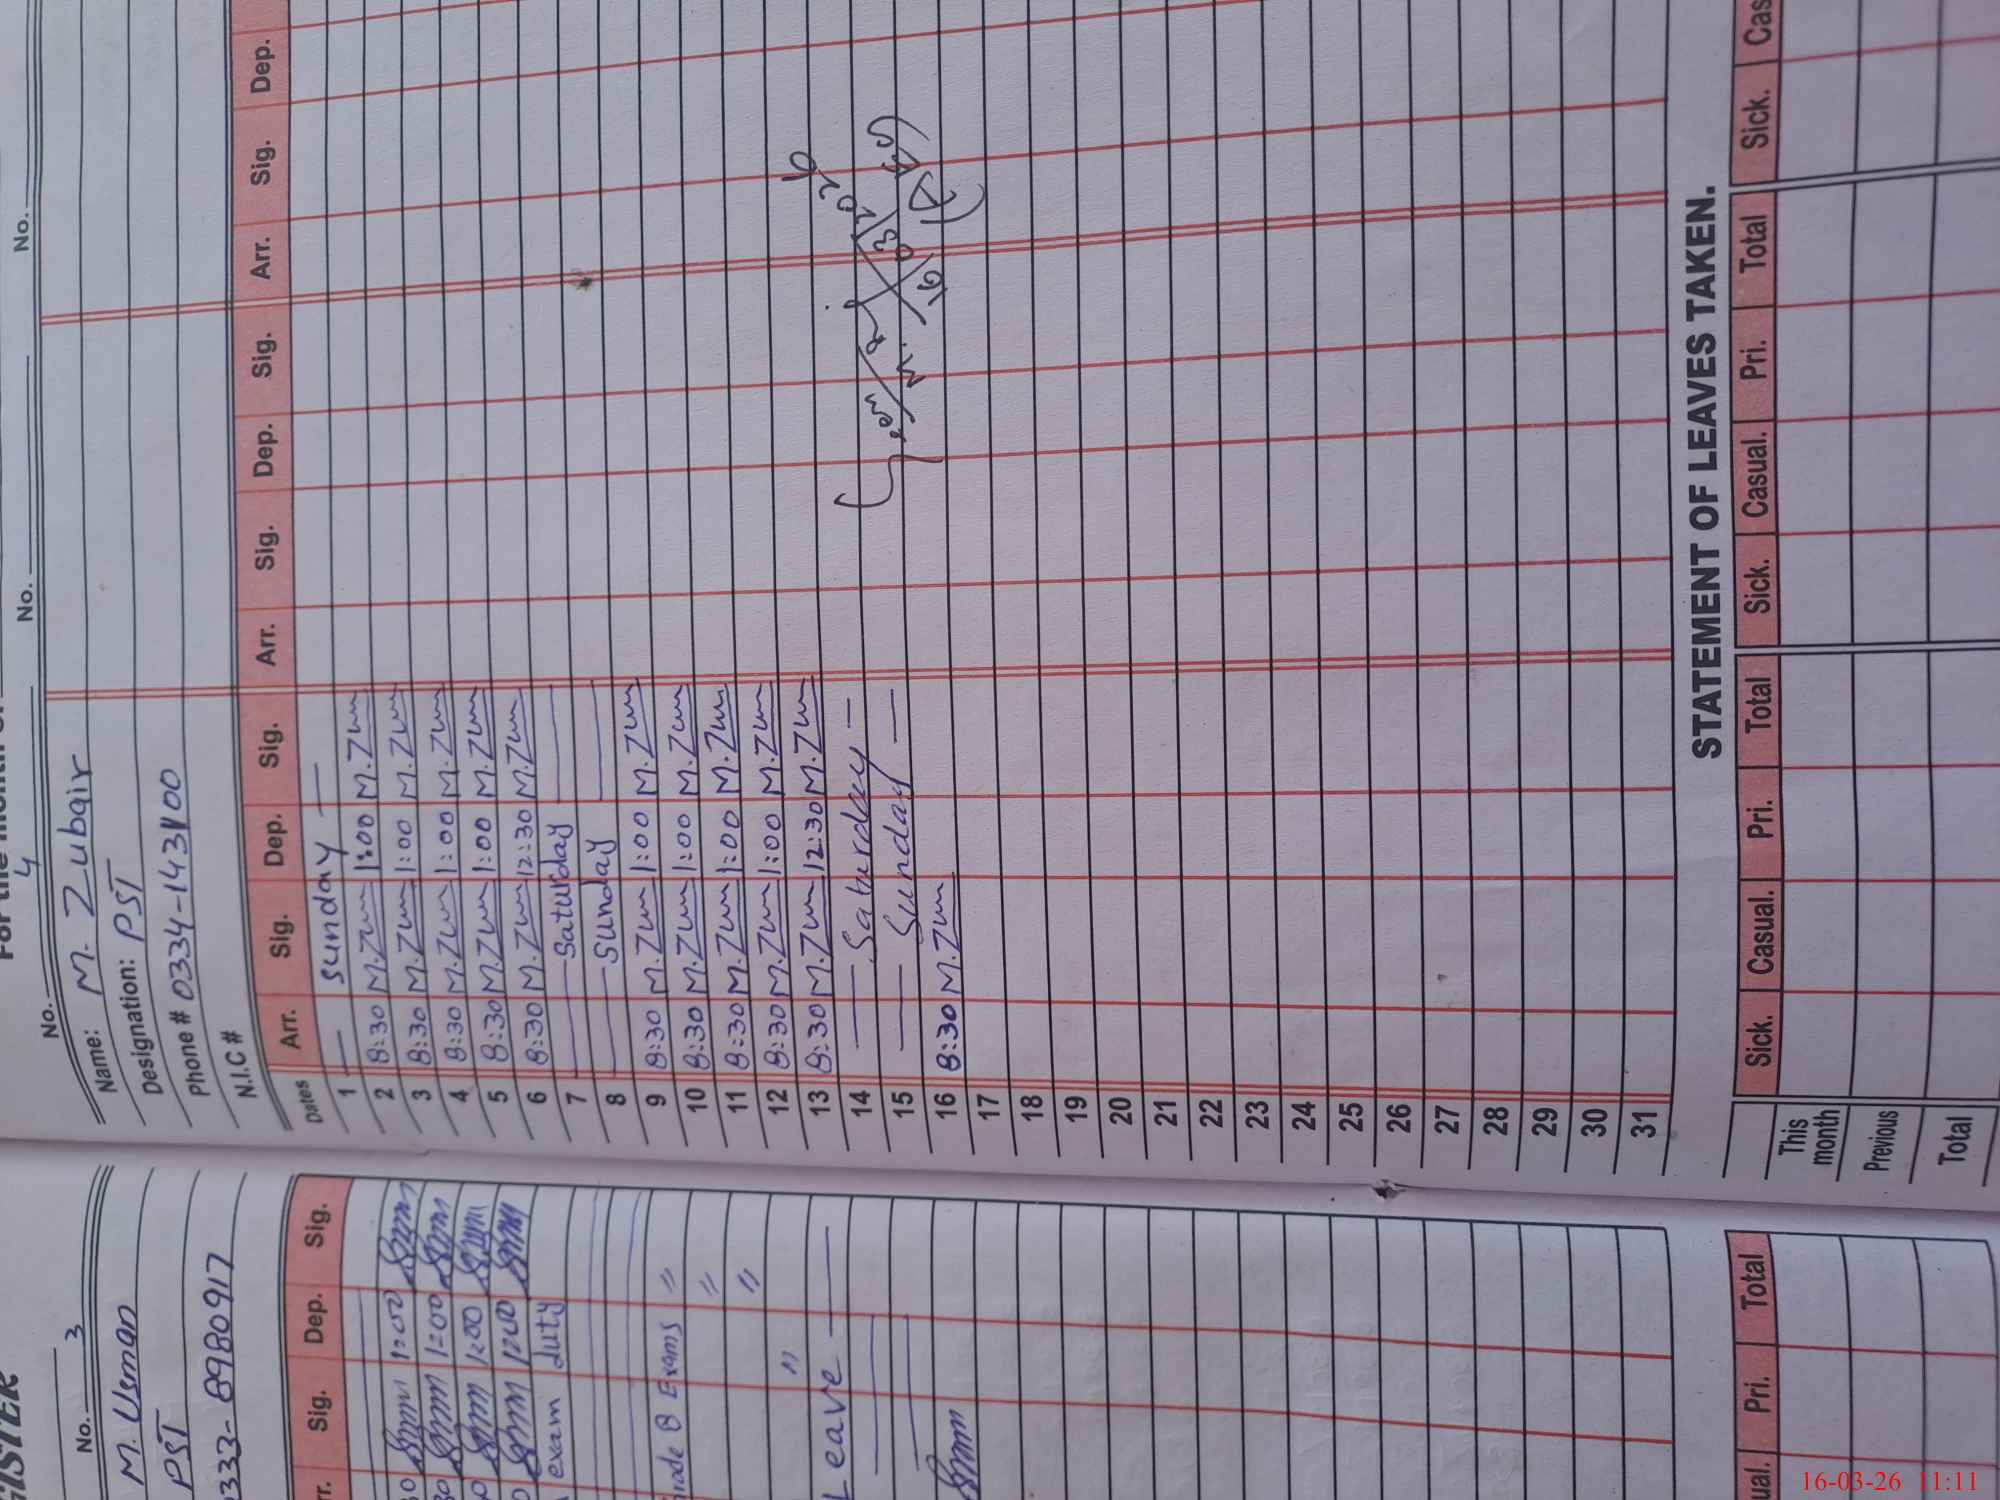 GISTER
No. 3
M. Usman
PST
0333-8980917
Sig. Dep. Sig.
1:00
1:00
1:00
1:00
exam duty
Grade 8 Exams "
"
"
"
Leave
Total
Pri. Total
No. 4 No. No.
Name: M. Zubair
Designation: PST
Phone # 0334-1433100
N.I.C #
Dates Arr. Sig. Dep. Sig. Arr. Sig. Dep. Sig. Arr. Sig. Dep.
1 — Sunday —
2 8:30 M.Zum 1:00 M.Zum
3 8:30 M.Zum 1:00 M.Zum
4 8:30 M.Zum 1:00 M.Zum
5 8:30 M.Zum 1:00 M.Zum
6 8:30 M.Zum 12:30 M.Zum
7 — Saturday —
8 — Sunday —
9 8:30 M.Zum 1:00 M.Zum
10 8:30 M.Zum 1:00 M.Zum
11 8:30 M.Zum 1:00 M.Zum
12 8:30 M.Zum 1:00 M.Zum
13 8:30 M.Zum 12:30 M.Zum
14 — Saturday —
15 — Sunday —
16 8:30 M.Zum
16/03/2026
17
18
19
20
21
22
23
24
25
26
27
28
29
30
31
STATEMENT OF LEAVES TAKEN.
Sick. Casual. Pri. Total Sick. Casual. Pri. Total Sick. Cas
This month
Previous
Total
16-03-26 11:11